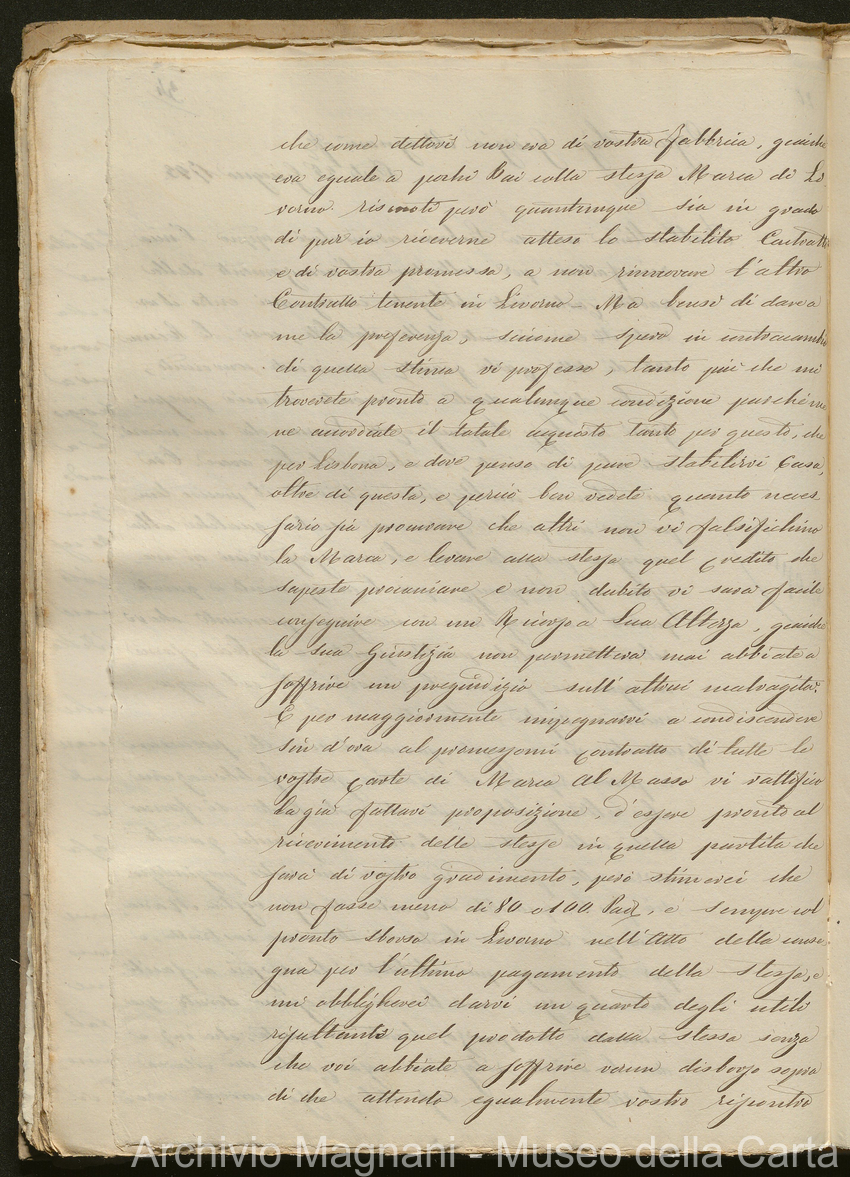 che come dettovi non era di vostra fabbrica, giacche
era eguale a pochi Rai colla stessa Marca di Li
vorno. però quantunque sia in grado
di pur io riceverne atteso lo stabilito Contratto
e di vostra promessa, a non rinnovare l'altro
Contratto tenente in Livorno. Ma bensì di dare a
me la preferenza, siccome spero in contracambio
di quella stima vi professo, tanto più che mi
troverete pronto a qualunque condizione purchè me
ne accordiate il totale acquisto tanto per questo, che
per Lisbona, e dove penso di pure stabilirvi Casa,
oltre di questa, e perciò ben vedete quanto neces
sario sia procurare che altri non vi falsifichino
la Marca, e levare alla stessa quel credito che
sapeste procurare e non dubito vi sarà facile
conseguire con un Ricorso a Sua Altezza, giacche
la sua Giustizia non permetterà mai abbiate a
soffrire un pregiudizio sull'altrui malvagità.
E per maggiormente impegnarvi a condiscendere
sin d'ora al promessomi contratto di tutte le
vostre Carte di Marca Al Masso vi rattifico
la già fattavi proposizione, d'essere pronto al
ricevimento delle stesse in quella partita che
sarà di vostro gradimento, però stimerei che
non fosse meno di 80 o 100. , e sempre col
pronto sborso in Livorno nell'Atto della conse
gna per l'ultimo pagamento della stessa, e
mi obbligherei darvi un quarto degli utili
risultanti quel prodotto dalla stessa senza
che voi abbiate a soffrire verun disborso sopra
di che attendo egualmente vostro riscontro
Archivio Magnani - Museo della Carta